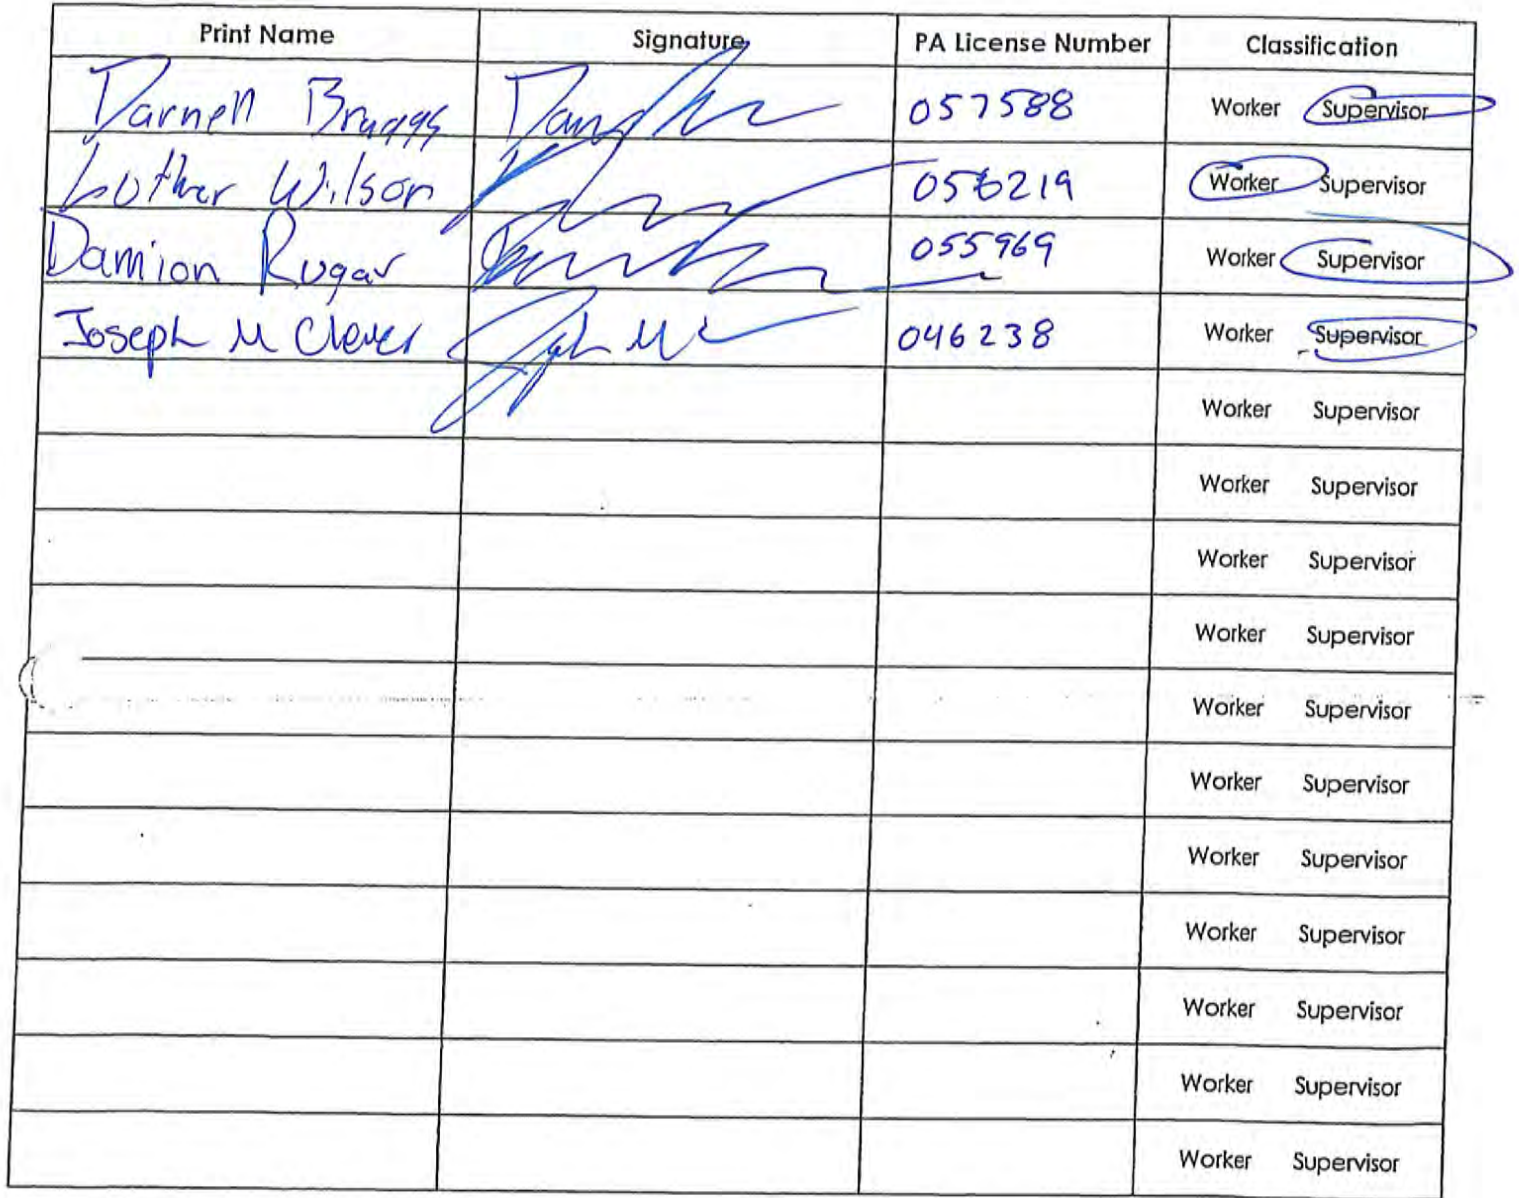 Print Name Signature PA License Number Classification
Darnell Braggs 057588 Worker Supervisor
Luther Wilson 056219 Worker Supervisor
Damion Rugar 055969 Worker Supervisor
Joseph M Clever 046238 Worker Supervisor
Worker Supervisor
Worker Supervisor
Worker Supervisor
Worker Supervisor
Worker Supervisor
Worker Supervisor
Worker Supervisor
Worker Supervisor
Worker Supervisor
Worker Supervisor
Worker Supervisor